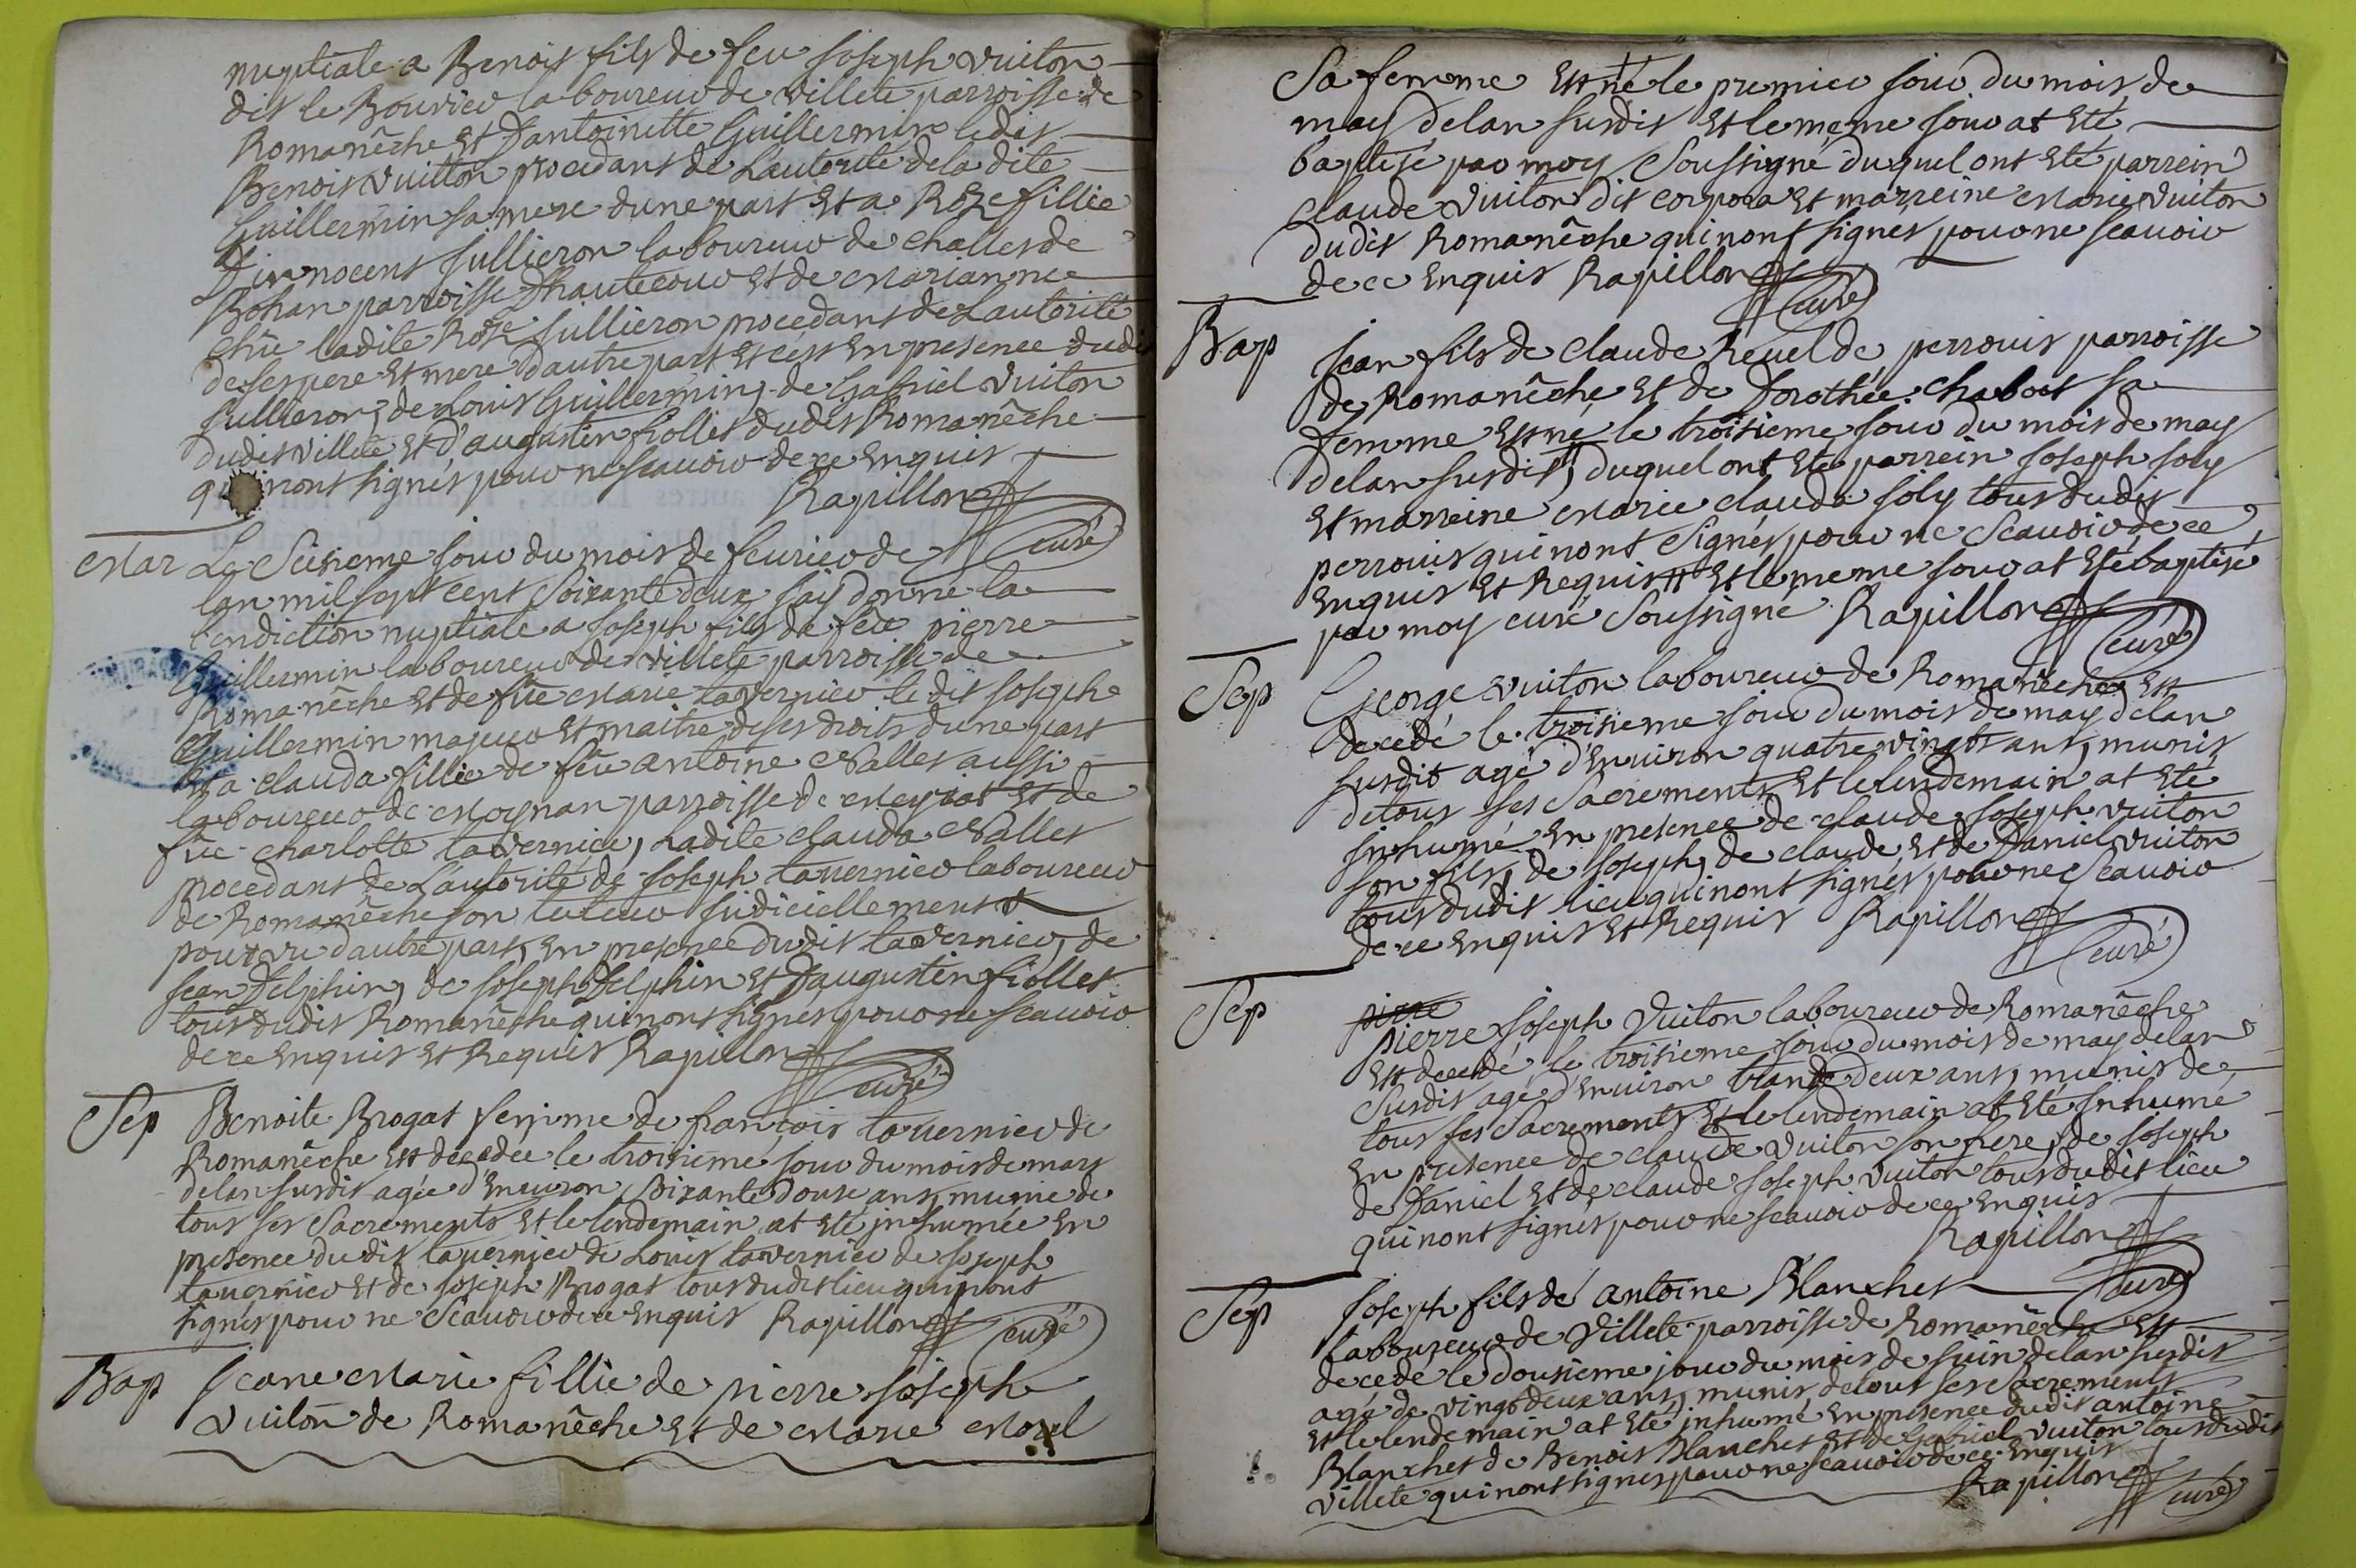 nuptiale a Benois fils de feu Joseph vuiton
dis le Bouvier laboureur de villete parroisse de
Romanêche et d'antoinette Guillermin ledis
Benois vuiton procedans de L'autorité de la dite
Guillermin sa mere dune part et a Roze fillie
D'innocens Jullieron laboureur de challes de
Bohan parroisse d'hautecour et de marianne
ladite Roze Jullieron procedans de L'autorité
de ses pere et mere dautre part et cess en presence dudis
Jullieron, de Louis Guillerming de Gabriel vuiton
dudis villete et d'augustin fiolles dudis Romanêche
qui nont signés pour ne scauoir de ce enquis
Rapillon
curé
Mar Le Seisieme jour du mois de feurier de
lan mil sept cent Soixante deux jay donné la
bendiction nuptiale a Joseph fils de feu pierre
Guillermin laboureur de villete parroisse de
Romanêche et de fûe marie tavernier le dis Joseph
Guillermin majeur et maitre de ses droits dune part
et a clauda fillie de feu antoine Nalles aussi
laboureur de mognan parroisse de meyriat et de
fûe charlotte tavernier, Ladite clauda Nalles
procedans de L'autorité de Joseph tauernier laboureur
de Romanêche son tuteur Judiciellement
pourvu dautre part, en presence dudis tavernier, de
Jean Delphin, de Joseph Delphin et d'augustin fiolles
tous dudis Romanêche qui nont signés pour ne scauoir
de ce enquis et Requis Rapillon
curé
Sep Benoite Brogat femme de francois tauernier de
Romanêche est decedée le troisieme jour du mois de mars
de lan susdis agée d'enuiron soixante douse ans, munie de
tous ses Sacrements et le lendemain at eté inhumée en
presence dudis tauernier de Louis tavernier de Joseph
tauernier et de Joseph Brogat tous dudis lieu qui nont
signés pour ne Scauoir de ce enquis Rapillon
curé
Bap Jeane Marie fillie de pierre Joseph
vuiton de Romanêche et de marie morel
Sa femme est né le premier jour du mois de
may de lan susdis et le meme jour at eté
baptisé par moy Soussigné duquel ont eté parrein
claude vuiton dis corpora et marreine marie vuiton
dudis Romanêche qui nont signés pour ne scauoir
de ce enquis Rapillon
curé
Bap Jean fils de claude Reuel de perrouis parroisse
de Romanêche et de Dorothée chabot sa
femme est né le troisieme jour du mois de may
de lan susdis, duquel ont eté parrein Joseph Joly
et marreine marie clauda Joly tous dudis
perrouis qui nont Signés pour ne Scauoir de ce
enquis et Requis et le meme jour at eté baptisé
par moy curé Soussigné Rapillon
curé
Sep George vuiton laboureur de Romanêche est
decedé le troisieme jour du mois de may de lan
susdit agé d'enuiron quatre vingts ans, munis
de tous ses Sacrements et le lendemain at eté
inhumé en presence de claude Joseph vuiton
son fils, de Joseph, de claude et de Daniel vuiton
tous dudis lieu qui nont signés pour ne Scauoir
de ce enquis et Requis Rapillon
curé
Sep pierre
pierre Joseph Vuiton laboureur de Romanêche
est decedé le troisieme jour du mois de may de lan
Susdis agé d'enuiron trante deux ans, munis de
tous ses Sacrements et le lendemain at eté inhumé
en presence de claude vuiton son frere, de Joseph
de Daniel et de claude Joseph vuiton tous dudis lieu
qui nont signés pour ne scauoir de ce enquis
Rapillon
curé
Sep Joseph fils de antoine Blanches
laboureur de Villete parroisse de Romanêche est
decedé le dousieme jour du mois de juin de lan susdis
agé de vingt deux ans, munis de tous ses Sacrements
et le lendemain at eté inhumé en presence dudis antoine
Blanches de Benois Blanches et de Gabriel vuiton tous dudis
villete qui nont signés pour ne scauoir de ce enquis
Rapillon
curé